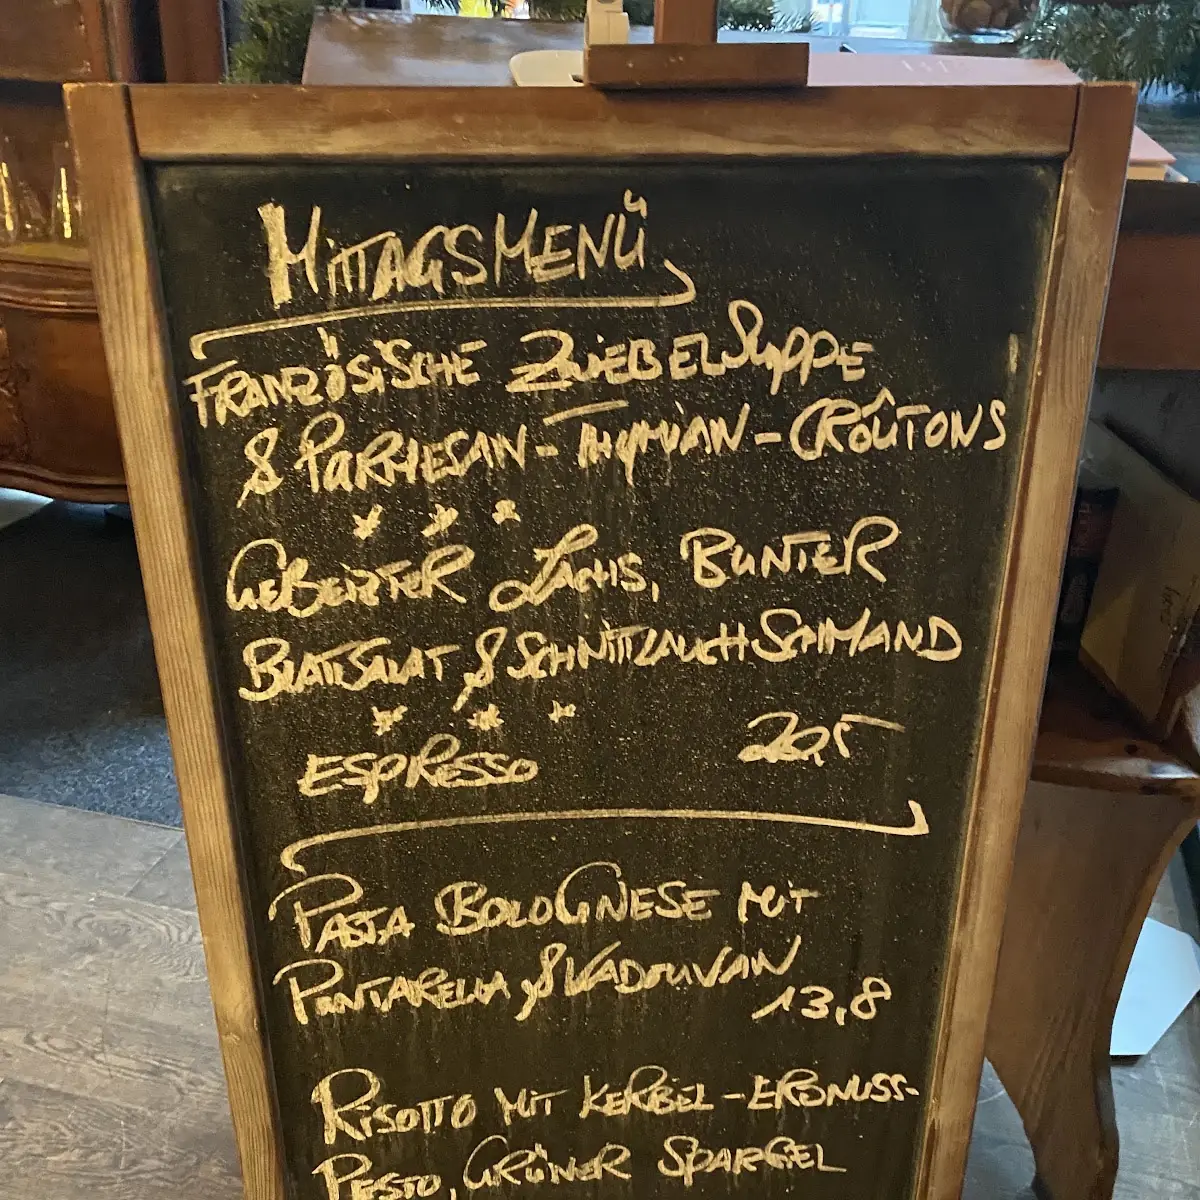 MITTAGSMENÜ
FRANZÖSISCHE ZWIEBELSUPPE
& PARMESAN-THYMIAN-CROÛTONS
* * *
GEBEIZTER LACHS, BUNTER
BLATTSALAT & SCHNITTLAUCHSCHMAND
* * *
ESPRESSO 20,5
PASTA BOLOGNESE MIT
PUNTARELLA & VADOUVAN
13,8
RISOTTO MIT KERBEL-ERDNUSS-
PESTO, GRÜNER SPARGEL